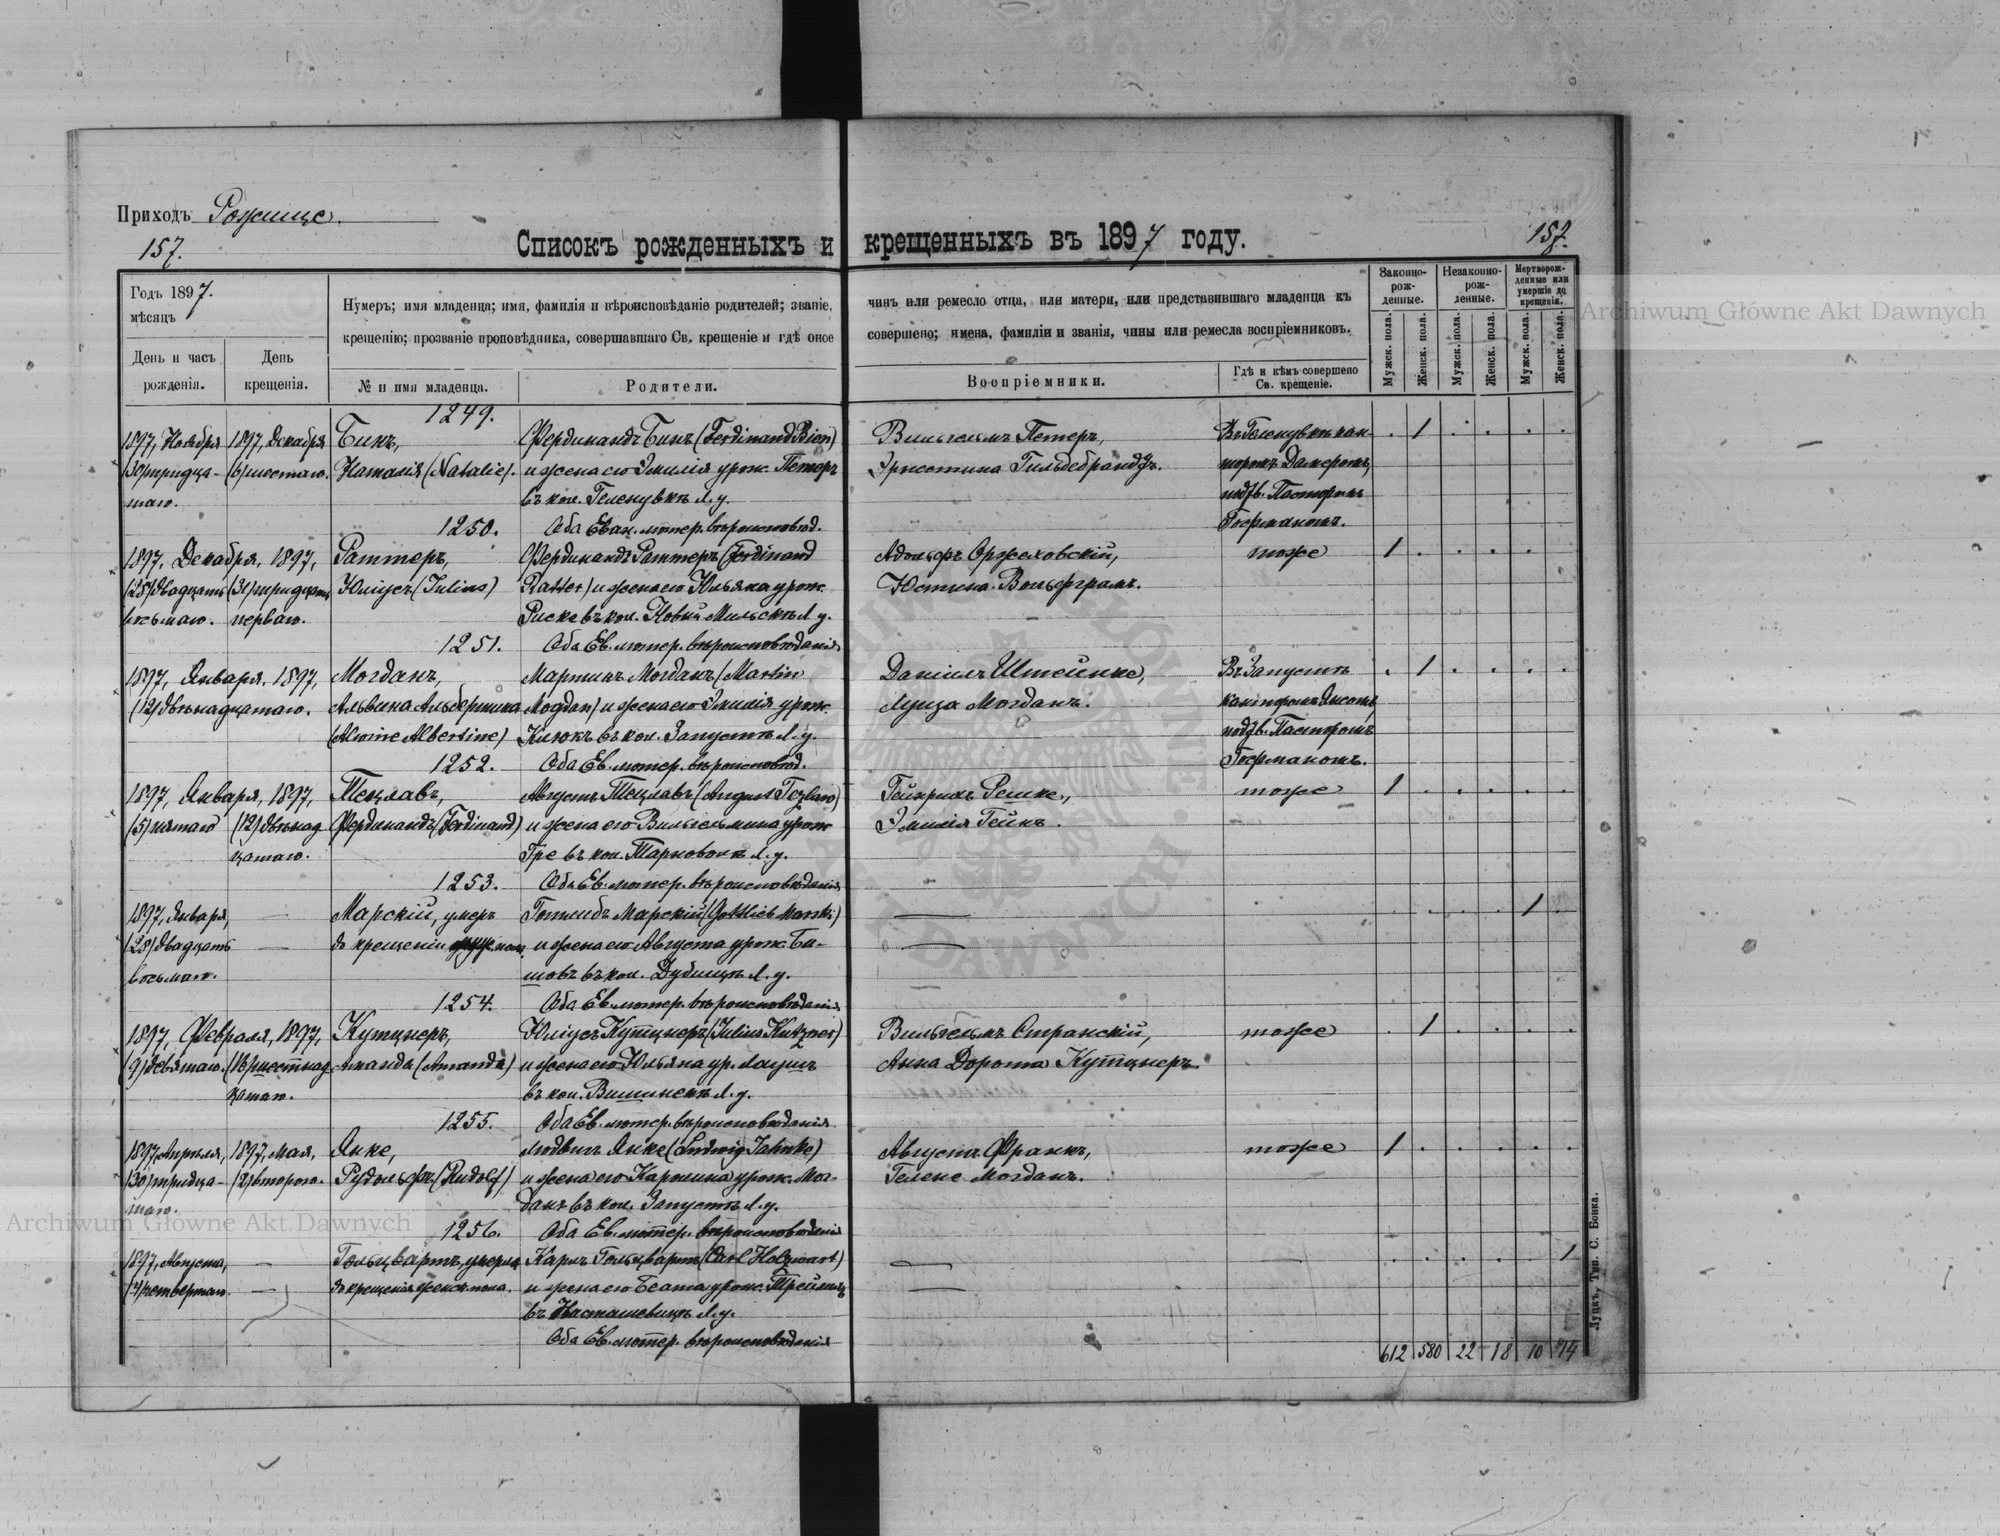 Приходъ Рожище.
157.
157.
Списокъ рожденныхъ и крещенныхъ въ 1897 году.
Годъ 1897.
мѣсяцъ
День и часъ рожденія.
День крещенія.
Нумеръ; имя младенца; имя, фамилія и вѣроисповѣданіе родителей; званіе, чинъ или ремесло отца, или матери, или представившаго младенца къ
крещенію; прозваніе проповѣдника, совершавшаго Св. крещеніе и гдѣ оное совершено; имена, фамиліи и званія, чины или ремесла воспріемниковъ.
№ и имя младенца.
Родители.
Воспріемники.
Гдѣ и кѣмъ совершено Св. крещеніе.
Законно-рож-денные.
Незаконно-рож-денные.
Мертворож-денные или умершіе до крещенія.
Мужск. пола.
Женск. пола.
Мужск. пола.
Женск. пола.
Мужск. пола.
Женск. пола.
1249.
1897, Ноября 1897, Декабря Бинъ, Фердинандъ Бинъ (Ferdinand Bien) Вильгельмъ Петеръ, Въ Геленувкѣ кан- . 1 . . . .
(30) тридца- (6) шестаго. Наталія (Natalie). и жена его Эмилія урож. Петеръ Эрнстина Гильдебрандъ. торомъ
таго. въ кол. Геленувкѣ Л. у. подтв. Пасторомъ
1250. Оба Еван. лютер. вѣроисповѣд. Германомъ.
1897, Декабря, 1897, Раттеръ, Фердинандъ Раттеръ (Ferdinand Адольфъ Оржеховскій, тоже 1 . . . .
(28) двадцать (31) тридцать Юліусъ (Julius) Ratter) и жена его Юльяна урож. Юстина Вольфграмъ.
восьмаго. перваго. Риске въ кол. Новый Мильскъ Л. у.
1251. Оба Ев. лютер. вѣроисповѣданія
1897, Января, 1897, Могданъ, Мартинъ Могданъ (Martin Даніилъ Штейнке, Въ Запустѣ . 1 . . . .
(12) двѣнадцатаго. Альвина Альбертина Mogdan) и жена его Эмилія урож. Луиза Могданъ. канторомъ
(Alwine Albertine) Клюкъ въ кол. Запустѣ Л. у. подтв. Пасторомъ
1252. Оба Ев. лютер. вѣроисповѣд. Германомъ.
1897, Января, 1897, Тецлавъ, Августъ Тецлавъ (August Tezlaw) Гейнрихъ Решке, тоже 1 . . . . .
(5) пятаго (12) двѣнад- Фердинандъ (Ferdinand) и жена его Вильгельмина урож. Эмилія Гейнъ.
цатаго. Гре въ кол. Тарноволѣ Л. у.
1253. Оба Ев. лютер. вѣроисповѣданія
1897, Января, — Марскій, умеръ Готлибъ Марскій (Gottlieb Marski) — . . . . 1 .
(28) двадцать — до крещенія и жена его Августа урож. Би- —
восьмаго. шовъ въ кол. Дубищѣ Л. у.
1254. Оба Ев. лютер. вѣроисповѣданія
1897, Февраля, 1897, Кутцнеръ, Юліусъ Кутцнеръ (Julius Kutzner) Вильгельмъ Странскій, тоже . 1 . . . .
(9) девятаго. (16) шестнад- Аманда (Amanda) и жена его Юльяна ур. Лаушъ Анна Дорота Кутцнеръ
цатаго. въ кол. Вишинекѣ Л. у.
1255. Оба Ев. лютер. вѣроисповѣданія
1897, Апрѣля, 1897, Мая, Янке, Людвигъ Янке (Ludwig Jahnke) Августъ Франкъ, тоже 1 . . . . .
(30) тридца- (2) втораго. Рудольфъ (Rudolf) и жена его Каролина урож. Мог- Гелене Могданъ.
таго. данъ въ кол. Запустѣ Л. у.
1256. Оба Ев. лютер. вѣроисповѣданія
1897, Августа, — Гольцвартъ, умерла Карлъ Гольцвартъ (Carl Holzwart) — . . . . . 1
(4) четвертаго. — до крещенія женск. пола. и жена его Беата урож. —
въ Л. у.
Оба Ев. лютер. вѣроисповѣданія
612 580 22 18 10 14
Луцкъ, Тип. С. Бонка.
Archiwum Główne Akt Dawnych
Archiwum Główne Akt Dawnych